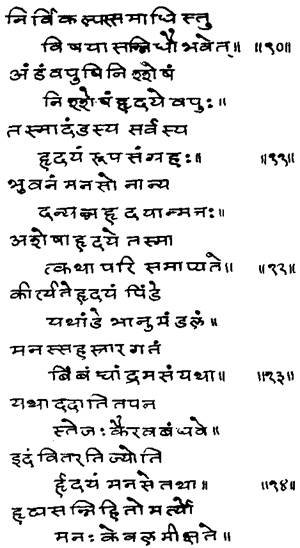 निर्विकल्पसमाधिस्तु
विषयासन्निधौ भवेत्॥ ॥१०॥
अंडं वपुषि निश्शेषं
निश्शेषं हृदये वपुः॥
तस्मादंडस्य सर्वस्य
हृदयं रूपसंग्रहः॥ ॥११॥
भुवनं मनसो नान्य
दन्यन्न हृदयान्मनः॥
अशेषा हृदये तस्मा
त्कथा परिसमाप्यते॥ ॥१२॥
कीर्त्यते हृदयं पिंडे
यथांडे भानुमंडलं॥
मनस्सहस्रारगतं
बिंबं चांद्रमसं यथा॥ ॥१३॥
यथा ददाति तपन
स्तेजः कैरवबंधवे॥
इदं वितरति ज्योति
र्हृदयं मनसे तथा॥ ॥१४॥
हृद्यसन्निहितो मर्त्यो
मनः केवलमीक्षते॥